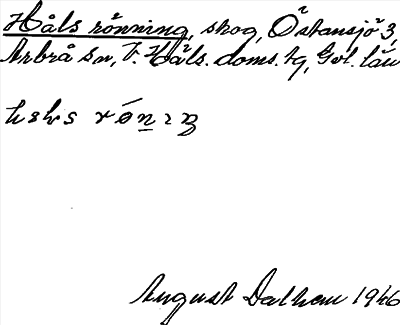 Håls rönning, skog, Östansjö 3,
Arbrå sn, V. Häls. doms. tg, Gvl. län
rön
August Dalhem 1946